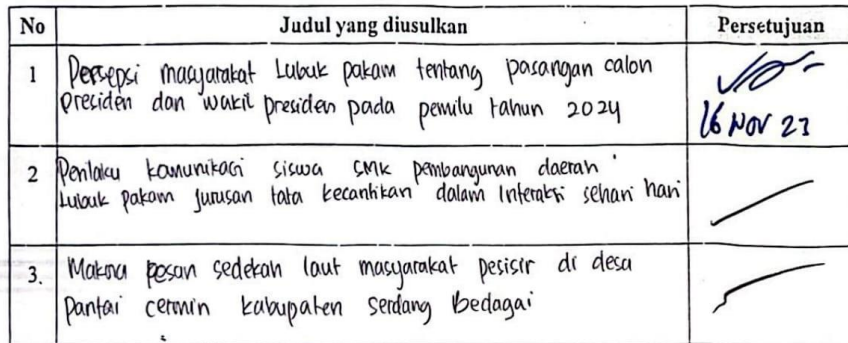 No Judul yang diusulkan Persetujuan
1 Persepsi masyarakat Lubuk pakam tentang pasangan calon
presiden dan wakil presiden pada pemilu tahun 2024
16 Nov 23
2 Perilaku komunikasi siswa SMK pembangunan daerah
Lubuk pakam jurusan tata kecantikan dalam interaksi sehari hari
3. Makna pesan sedekah laut masyarakat pesisir di desa
pantai cermin kabupaten serdang bedagai